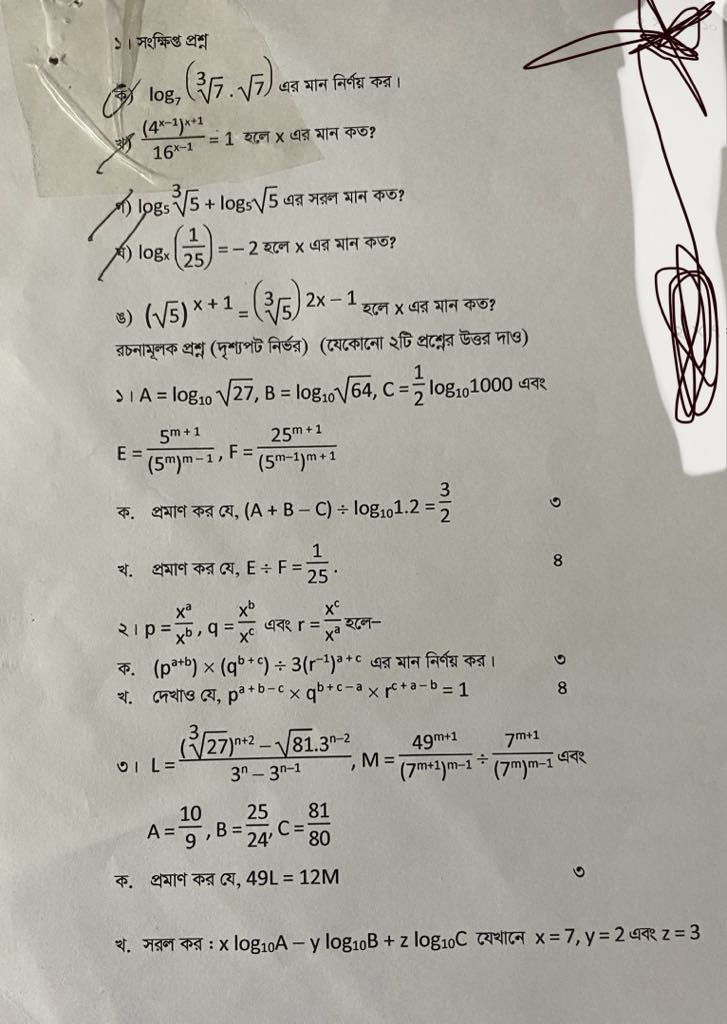 ১। সংক্ষিপ্ত প্রশ্ন
ক) log₇ (∛7 . √7) এর মান নির্ণয় কর।
খ) (4ˣ⁻¹)ˣ⁺¹ / 16ˣ⁻¹ = 1 হলে x এর মান কত?
গ) log₅ ∛5 + log₅√5 এর সরল মান কত?
ঘ) logₓ (1/25) = – 2 হলে x এর মান কত?
ঙ) (√5) ˣ ⁺ ¹ = (∛5) ²ˣ ⁻ ¹ হলে x এর মান কত?
রচনামূলক প্রশ্ন (দৃশ্যপট নির্ভর) (যেকোনো ২টি প্রশ্নের উত্তর দাও)
১। A = log₁₀ √27, B = log₁₀√64, C = 1/2 log₁₀1000 এবং
E = 5ᵐ ⁺ ¹ / (5ᵐ)ᵐ ⁻ ¹ , F = 25ᵐ ⁺ ¹ / (5ᵐ⁻¹)ᵐ ⁺ ¹
ক. প্রমাণ কর যে, (A + B – C) ÷ log₁₀1.2 = 3/2 ৩
খ. প্রমাণ কর যে, E ÷ F = 1/25 . 8
২। p = xᵃ/xᵇ , q = xᵇ/xᶜ এবং r = xᶜ/xᵃ হলে–
ক. (pᵃ⁺ᵇ) × (qᵇ⁺ᶜ) ÷ 3(r⁻¹)ᵃ⁺ᶜ এর মান নির্ণয় কর। ৩
খ. দেখাও যে, pᵃ⁺ᵇ⁻ᶜ × qᵇ⁺ᶜ⁻ᵃ × rᶜ⁺ᵃ⁻ᵇ = 1 8
৩। L = ((∛27)ⁿ⁺² – √81.3ⁿ⁻²) / (3ⁿ – 3ⁿ⁻¹) , M = 49ᵐ⁺¹ / (7ᵐ⁺¹)ᵐ⁻¹ ÷ 7ᵐ⁺¹ / (7ᵐ)ᵐ⁻¹ এবং
A = 10/9 , B = 25/24, C = 81/80
ক. প্রমাণ কর যে, 49L = 12M ৩
খ. সরল কর : x log₁₀A – y log₁₀B + z log₁₀C যেখানে x = 7, y = 2 এবং z = 3